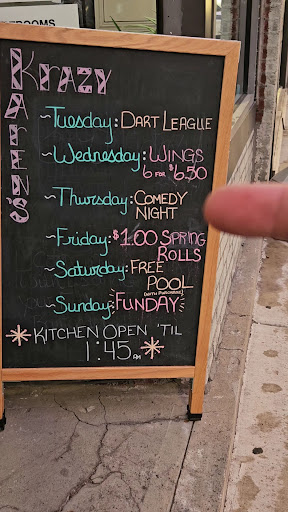 ROOMS
KRAZY
KAREN'S
~Tuesday: DART LEAGUE
~Wednesday: WINGS
6 FOR $6.50
~Thursday: COMEDY
NIGHT
~Friday: $1.00 SPRING
ROLLS
~Saturday: FREE
POOL
(WITH PURCHASE)
~Sunday: FUNDAY
* KITCHEN OPEN 'TIL *
1:45 AM